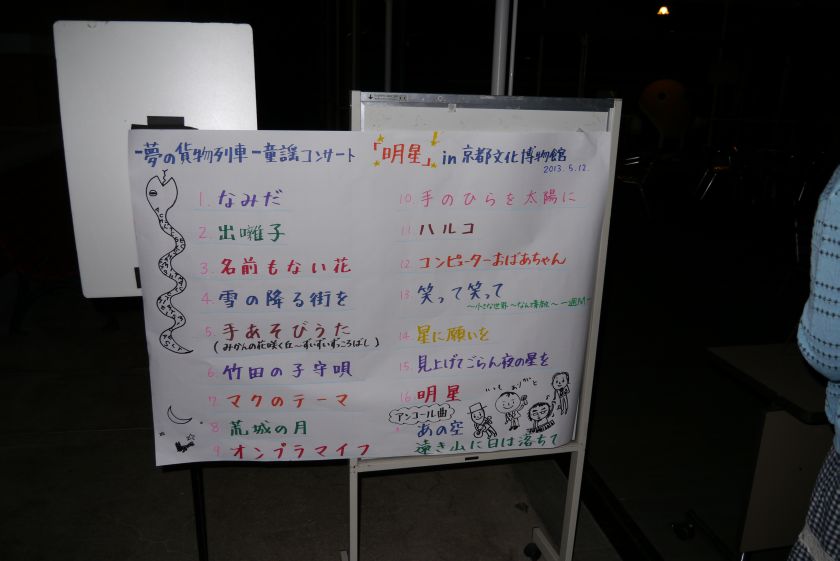 -夢の貨物列車-童謡コンサート 「明星」 in 京都文化博物館
2013. 5. 12.
1. なみだ
2. 出囃子
3. 名前もない花
4. 雪の降る街を
5. 手あそびうた
(みかんの花咲く丘〜ずいずいずっころばし)
6. 竹田の子守唄
7. マクのテーマ
8. 荒城の月
9. オンブラマイフ
10. 手のひらを太陽に
11. ハルコ
12. コンピューターおばあちゃん
13. 笑って笑って
〜小さな世界〜なんて素敵〜一週間-
14. 星に願いを
15. 見上げてごらん夜の星を
16 明星
いつもありがと
アンコール曲
あの空
遠き山に日は落ちて